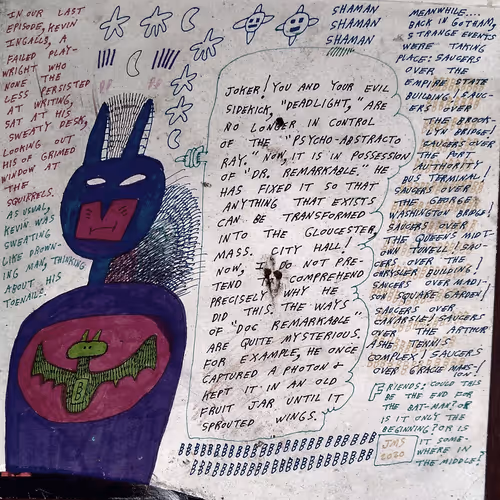 IN OUR LAST
EPISODE, KEVIN
INGALLS, A
FAILED PLAY-
WRIGHT WHO
NONE THE
LESS PERSISTED
AT WRITING,
SAT AT HIS
SWEATY DESK,
LOOKING OUT
HIS GRIMED
WINDOW AT
THE
SQUIRRELS.
AS USUAL,
KEVIN WAS
SWEATING
LIKE DROWN-
ING MAN, THINKING
ABOUT HIS
TOENAILS.
SHAMAN
SHAMAN
SHAMAN
JOKER! YOU AND YOUR EVIL
SIDEKICK, "DEADLIGHT," ARE
NO LONGER IN CONTROL
OF THE "PSYCHO-ABSTRACTO
RAY." NOW, IT IS IN POSSESSION
OF "DR. REMARKABLE." HE
HAS FIXED IT SO THAT
ANYTHING THAT EXISTS
CAN BE TRANSFORMED
INTO THE GLOUCESTER,
MASS. CITY HALL!
NOW, I DO NOT PRE-
TEND TO COMPREHEND
PRECISELY WHY HE
DID THIS. THE WAYS
OF "DOC REMARKABLE"
ARE QUITE MYSTERIOUS.
FOR EXAMPLE, HE ONCE
CAPTURED A PHOTON +
KEPT IT IN AN OLD
FRUIT JAR UNTIL IT
SPROUTED WINGS.
MEANWHILE...
BACK IN GOTHAM,
STRANGE EVENTS
WERE TAKING
PLACE: SAUCERS
OVER THE
EMPIRE STATE
BUILDING! SAUC-
ERS OVER
THE BROOK-
LYN BRIDGE!
SAUCERS OVER
THE PORT
AUTHORITY
BUS TERMINAL!
SAUCERS OVER
THE GEORGE
WASHINGTON BRIDGE!
SAUCERS OVER
THE QUEENS MIDT-
OWN TUNELL! SAU-
CERS OVER THE
CHRYSLER BUILDING!
SAUCERS OVER MADI-
SON SQUARE GARDEN!
SAUCERS OVER
CANARSIE! SAUCERS
OVER THE ARTHUR
ASHE TENNIS
COMPLEX! SAUCERS
OVER GRACIE MANS-
ION!
FRIENDS: COULD THIS
BE THE END FOR
THE BAT-MAN? OR
IS IT ONLY THE
BEGINNING? OR IS
IT SOME-
WHERE IN
THE MIDDLE?
JMS
2020
B